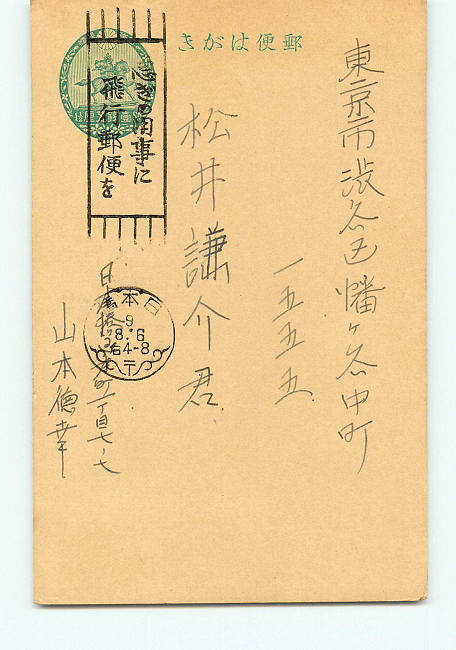 きがは便郵
東京市渋谷区幡ヶ谷中町
一五五五
松井謙介君
急ぎの用事に
飛行郵便を
日本橋
9
8.6
后4-8
日本橋区本町二丁目七ノ七
山本徳幸